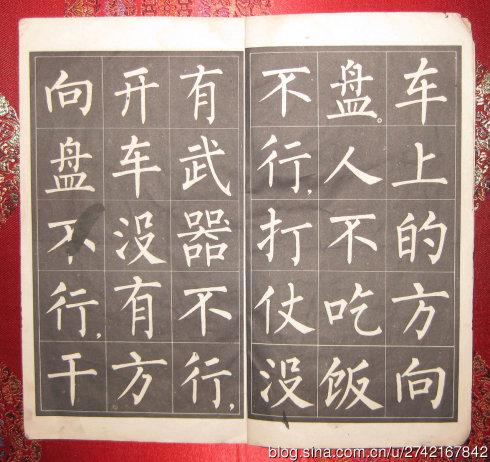 车上的方向
盘。人不吃饭
不行，打仗没
有武器不行，
开车没有方
向盘不行，干
blog.sina.com.cn/u/2742167842